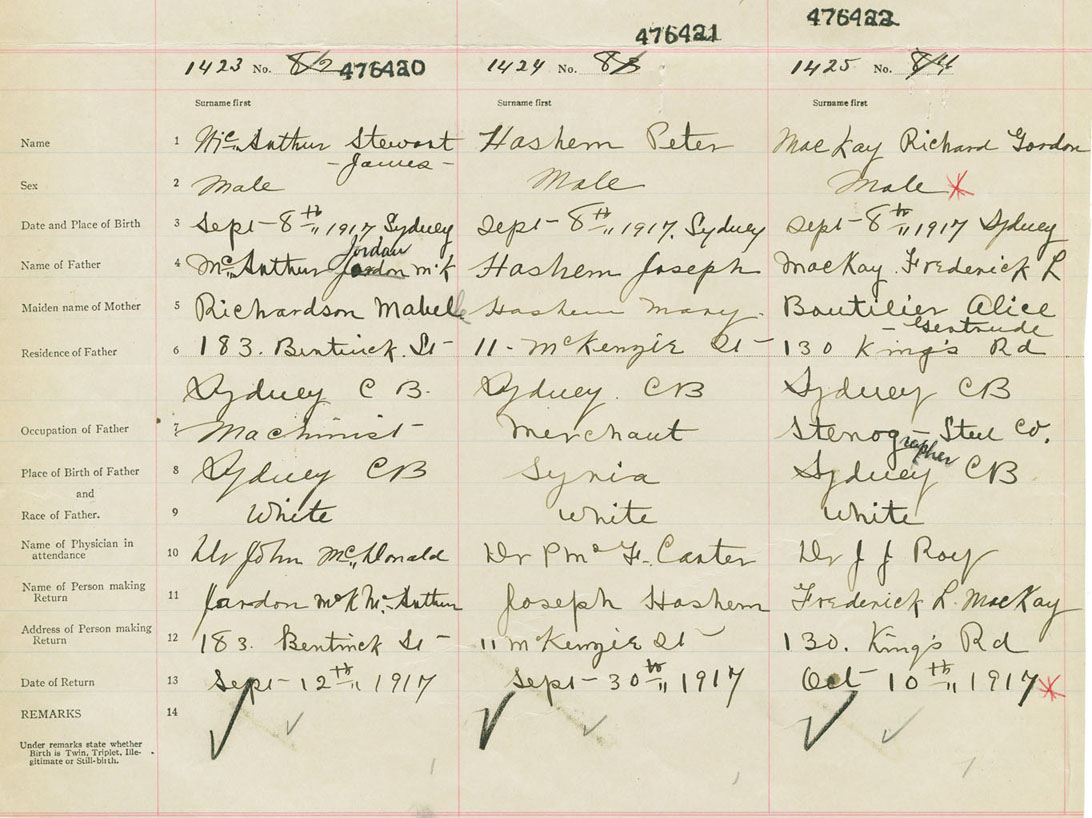 476422
476421
1423 No. 8/2 476420 1424 No. 8/3 1425 No. 8/4
Surname first Surname first Surname first
Name 1 McArthur Stewart Hashem Peter MacKay Richard Gordon
- James -
Sex 2 Male Male Male
Date and Place of Birth 3 Sept - 8th 1917, Sydney Sept - 8th 1917, Sydney Sept - 8th 1917 Sydney
Jordan
Name of Father 4 McArthur McK Hashem Joseph MacKay Frederick L
Maiden name of Mother 5 Richardson Mabelle Hashem Mary Boutilier Alice
- Gertrude
Residence of Father 6 183. Bentinck. St - 11 - McKenzie St - 130 King's Rd
Sydney C B. Sydney. CB Sydney CB
Occupation of Father 7 Machinist Merchant Stenographer - Steel Co.
Place of Birth of Father 8 Sydney CB Syria Sydney CB
and
Race of Father. 9 White White White
Name of Physician in
attendance 10 Dr John McDonald Dr P Mc F. Carter Dr J J Roy
Name of Person making
Return 11 Jordon McK McArthur Joseph Hashem Frederick L. MacKay
Address of Person making
Return 12 183. Bentinck St - 11 McKenzie St 130. King's Rd
Date of Return 13 Sept - 12th 1917 Sept - 30th 1917 Oct - 10th 1917
REMARKS 14
Under remarks state whether
Birth is Twin, Triplet, Ille-
gitimate or Still-birth.